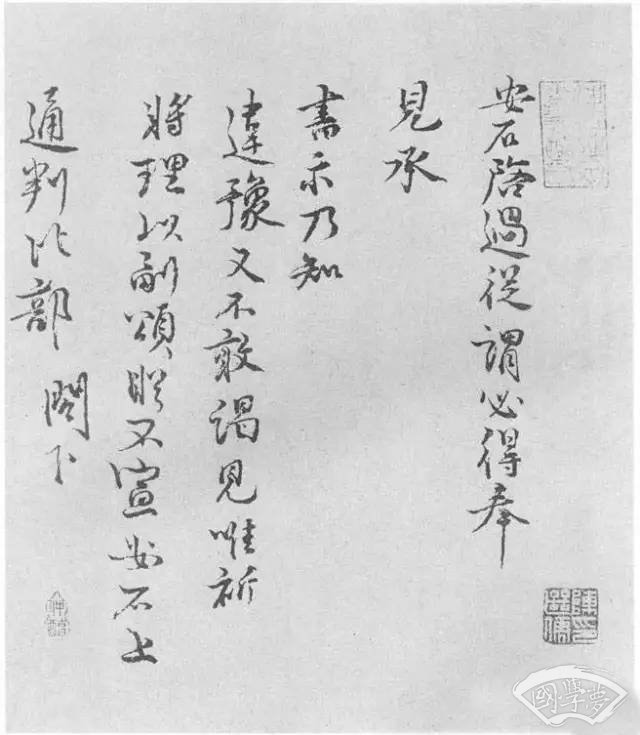 安石啓過從謂必得奉
見承
書示乃知
違豫又不敢謁見唯祈
將理以副頌眡不宣安石上
通判比部 閣下
國學夢